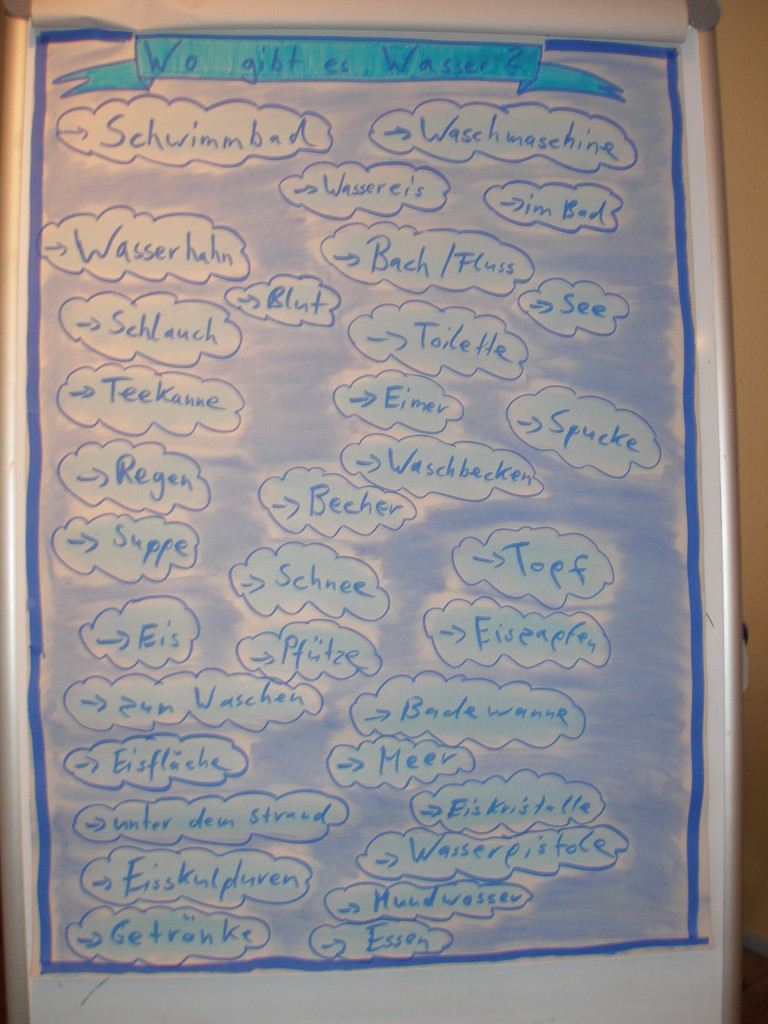 Wo gibt es Wasser?
→ Schwimmbad
→ Waschmaschine
→ Wassereis
→ im Bad
→ Wasserhahn
→ Bach / Fluss
→ Blut
→ See
→ Schlauch
→ Toilette
→ Teekanne
→ Eimer
→ Spucke
→ Regen
→ Waschbecken
→ Becher
→ Suppe
→ Schnee
→ Topf
→ Eis
→ Pfütze
→ Eiszapfen
→ zum Waschen
→ Badewanne
→ Eisfläche
→ Meer
→ unter dem strand
→ Eiskristalle
→ Wasserpistole
→ Eisskulpturen
→ Mundwasser
→ Getränke
→ Essen